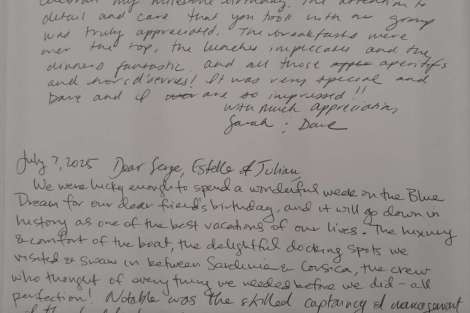 celebrate my milestone birthday. The attention to
detail and care that you took with our group
was truly appreciated. The breakfasts were
over the top, the lunches impeccable and the
dinners fantastic, and all those appe aperitifs
and hors d'oerves! It was very special and
Dave and I are so impressed!!
With much appreciation,
Sarah & Dave
July 7, 2025 Dear Serge, Estelle & Julian,
We were lucky enough to spend a wonderful week on the Blue
Dream for our dear friend's birthday, and it will go down in
history as one of the best vacations of our lives. The luxury
& comfort of the boat, the delightful docking spots we
visited & swam in between Sardinia & Corsica, the crew
who thought of everything we needed before we did - all
perfection! Notable was the skilled captaincy & management